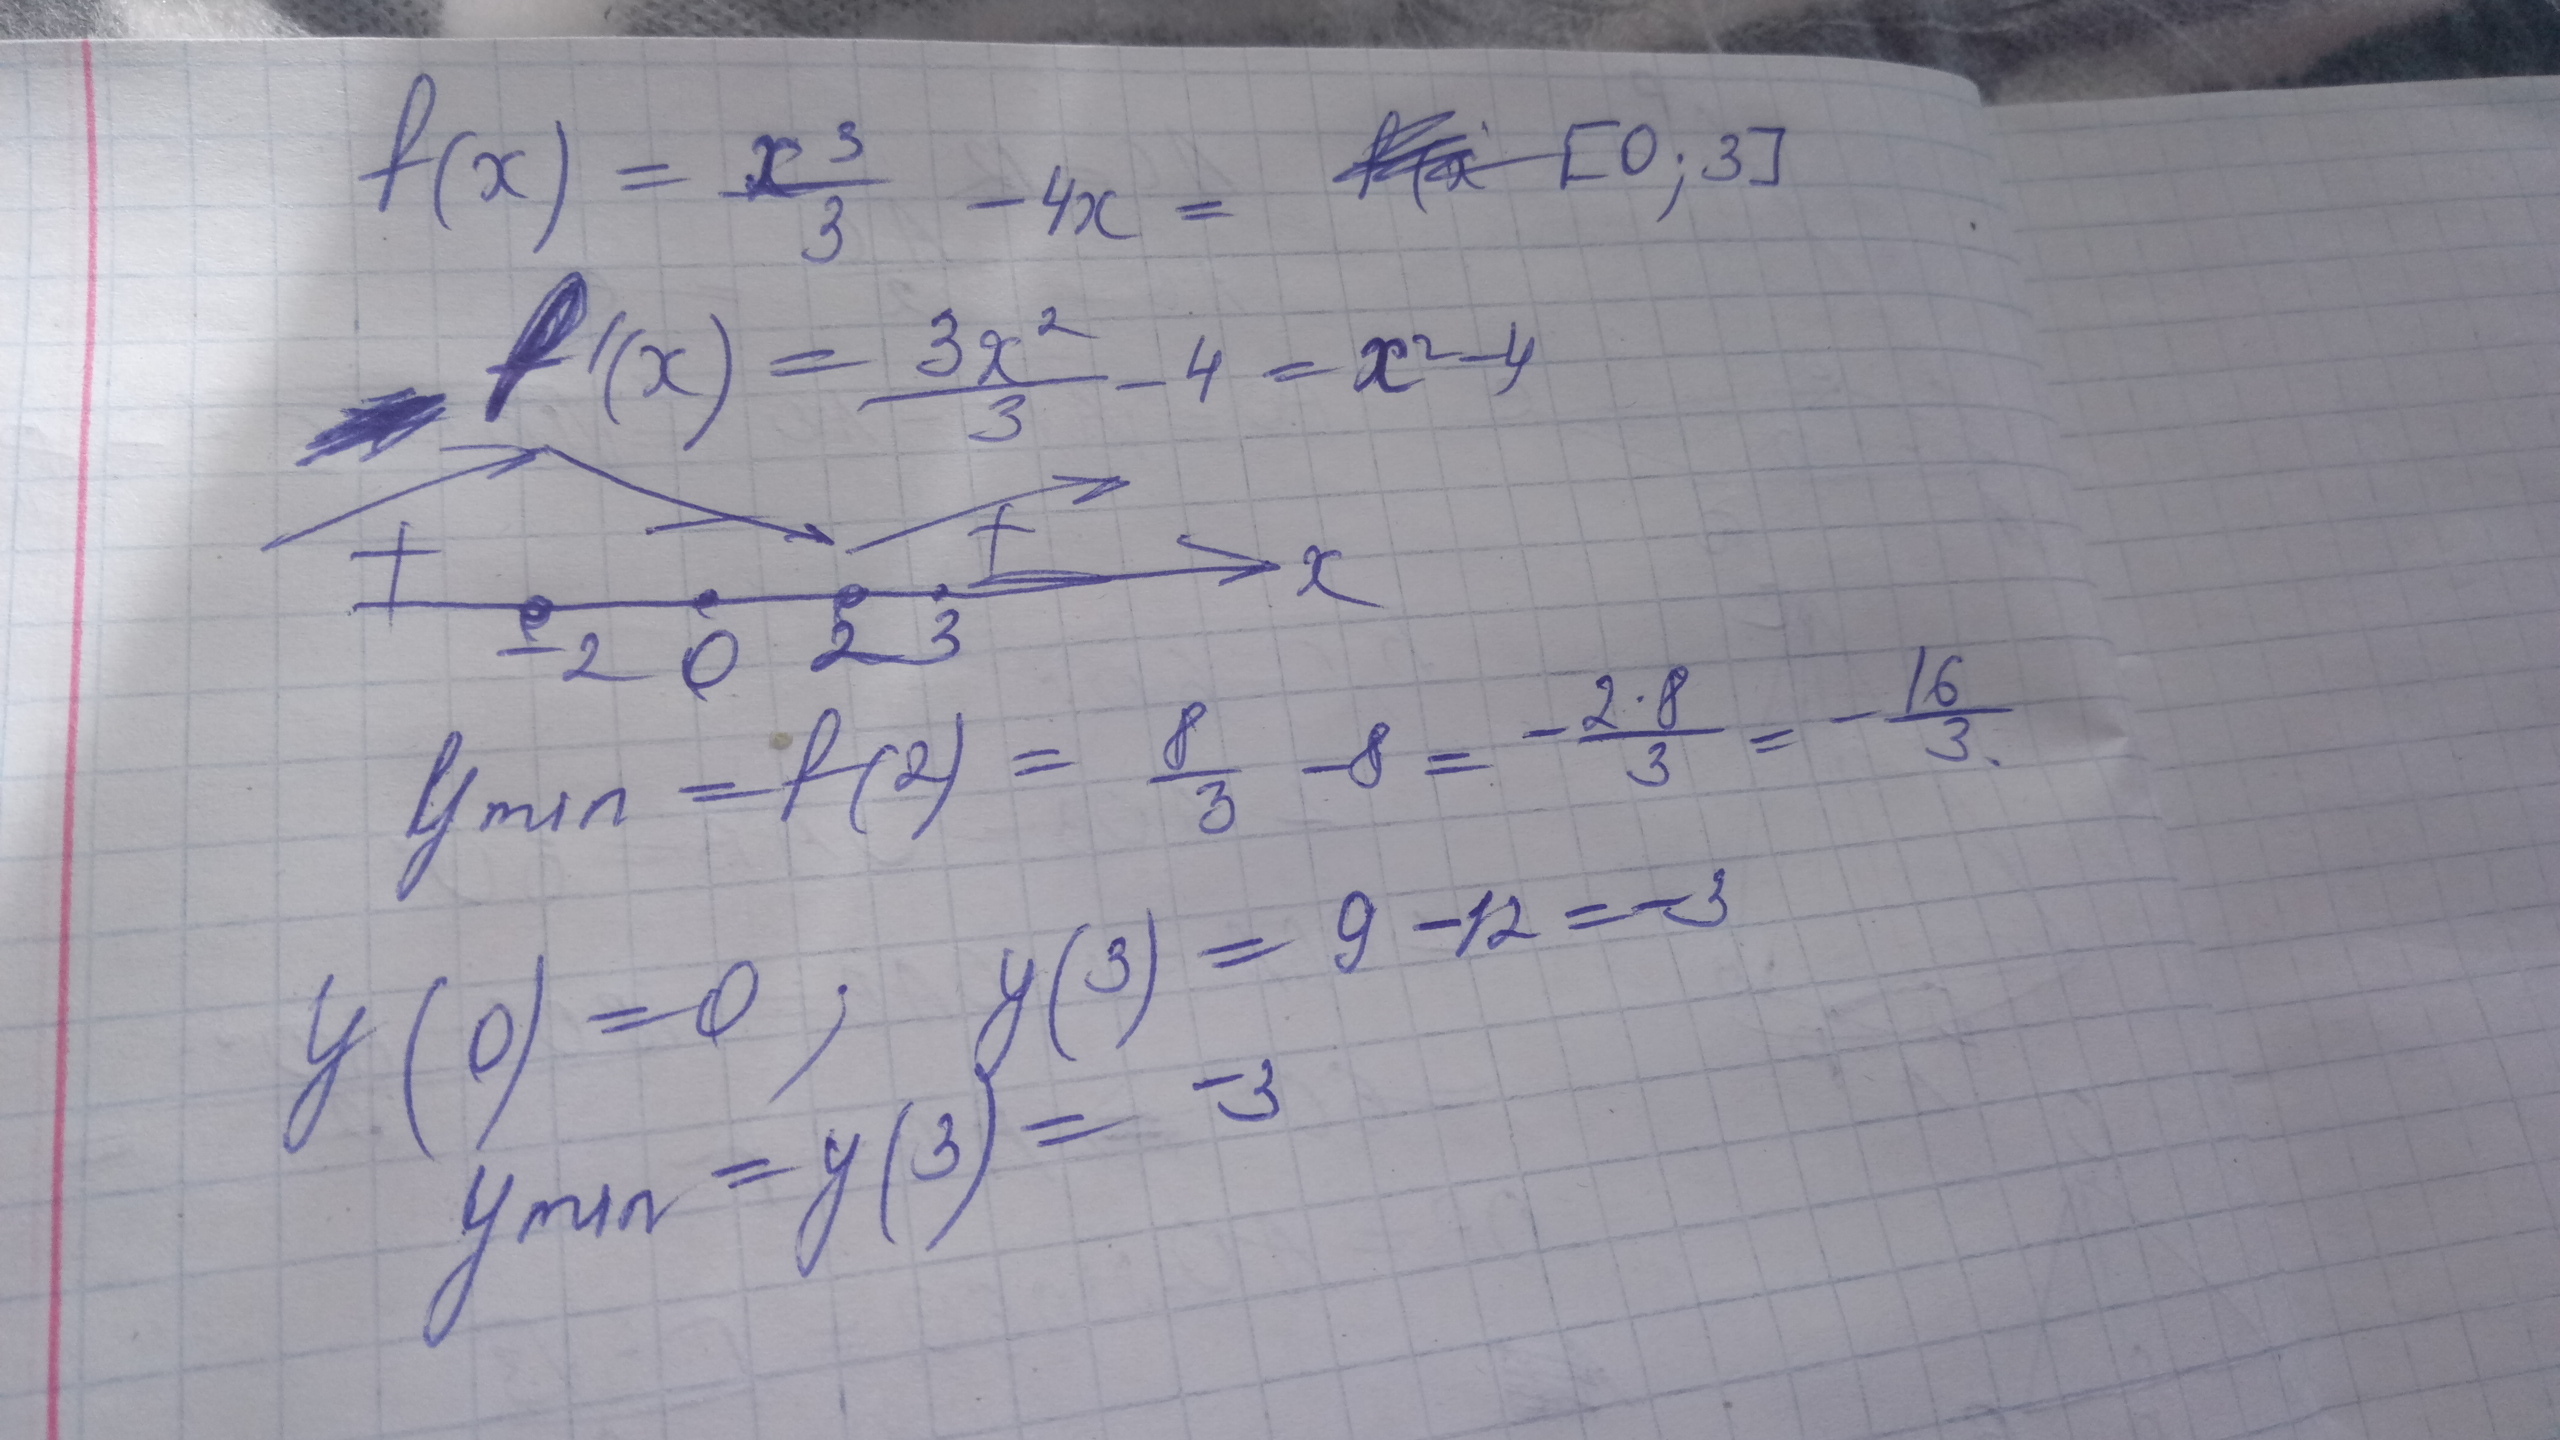 f(x) = x³/3 - 4x = [0; 3]
f'(x) = 3x²/3 - 4 = x² - 4
+ - + x
-2 0 2 3
y min = f(2) = 8/3 - 8 = - 2·8/3 = - 16/3.
y(0) = 0 ; y(3) = 9 - 12 = -3
y min = y(3) = -3